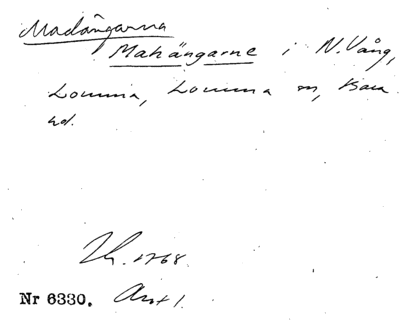 Madängarna
Mahängarne i N. Vång,
Lomma, Lomma sn, Bara
hd.
Lh. 1768.
Nr 6330. Avs 1.